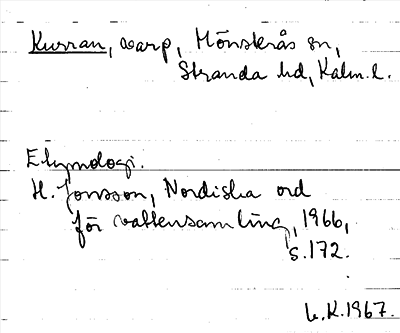 Kurran, varp, Mönsterås sn,
Stranda hd, Kalm. l.
Etymologi.
H. Jonsson, Nordiska ord
för vattensamling, 1966,
s. 172.
L.K. 1967.